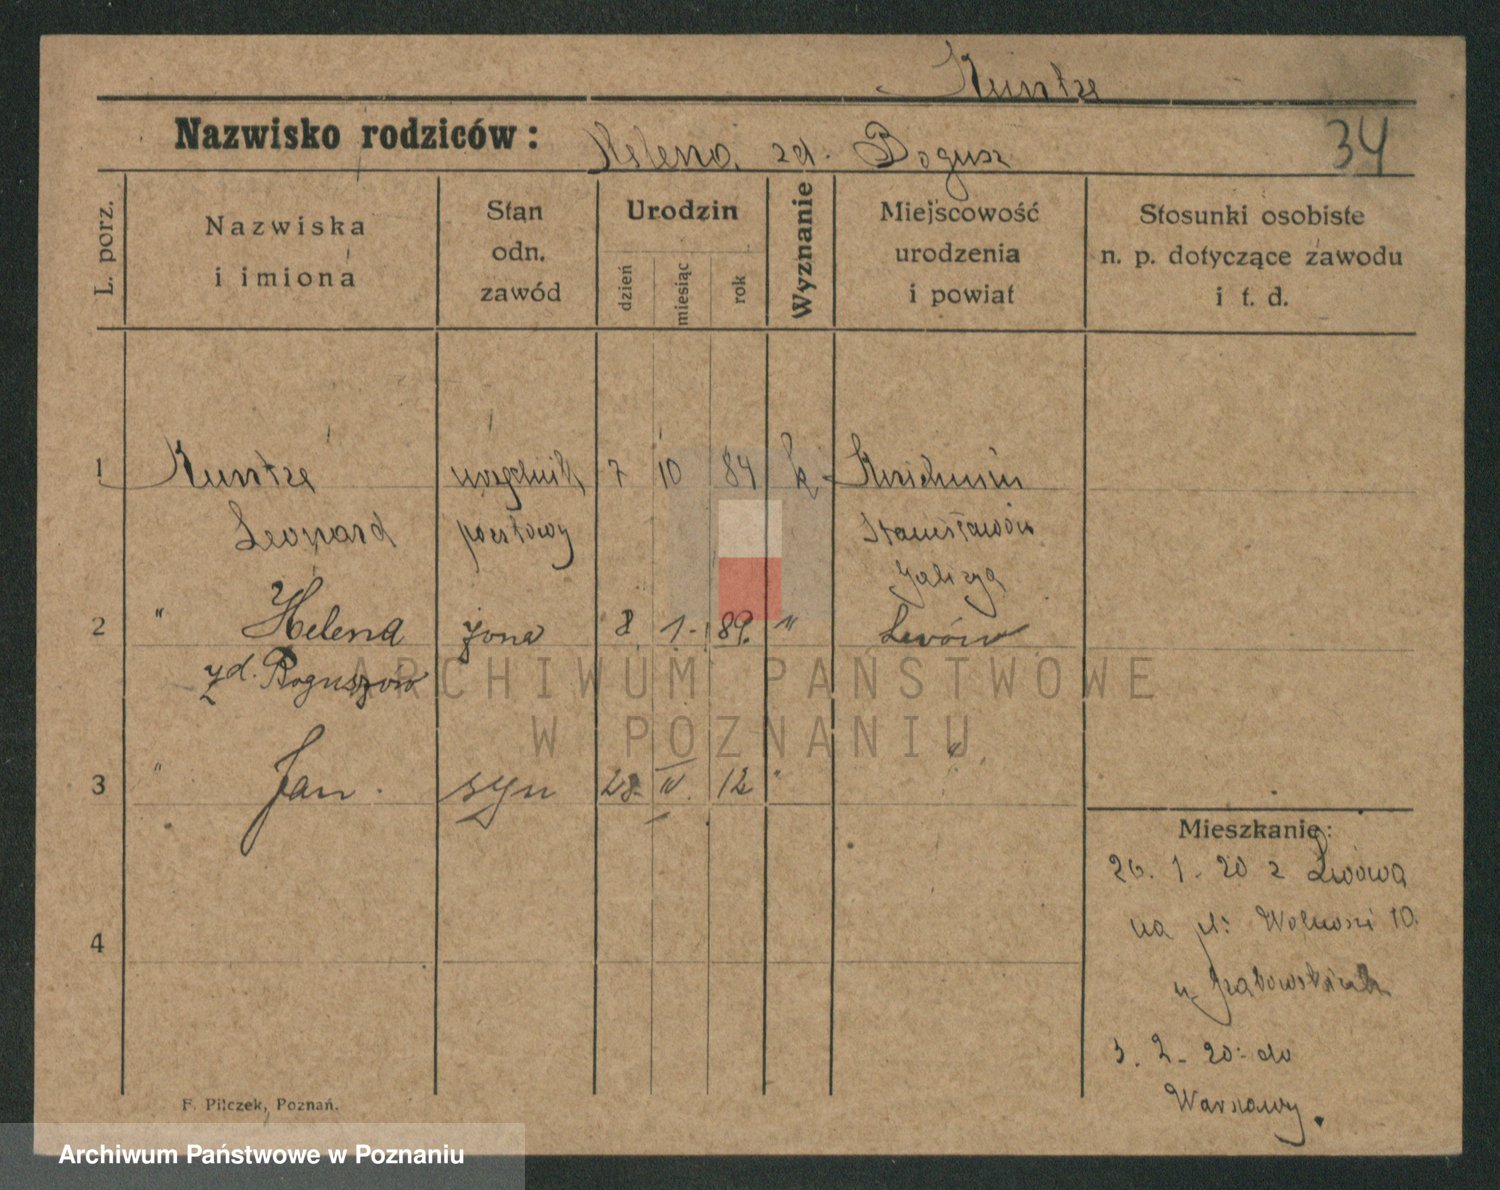 Kuntze
Nazwisko rodziców: Helena zd. Bogusz
34
L. porz.
Nazwiska
i imiona
Stan
odn.
zawód
Urodzin
dzień
miesiąc
rok
Wyznanie
Miejscowość
urodzenia
i powiat
Stosunki osobiste
n. p. dotyczące zawodu
i t. d.
1 Kuntze urzędnik 7 10 84 k
Leonard pocztowy Stanisławów
Galicya
2 " Helena żona 8 1. 89. " Lwów
zd. Boguszów
3 " Jan. syn 28. IV. 12 " "
4
Mieszkanie:
26. 1. 20 z Lwowa
na pl: Wolności 10.
u Grabowskich
3. 2. 20 do
Warszawy.
F. Pilczek, Poznań.
ARCHIWUM PAŃSTWOWE
W POZNANIU
Archiwum Państwowe w Poznaniu